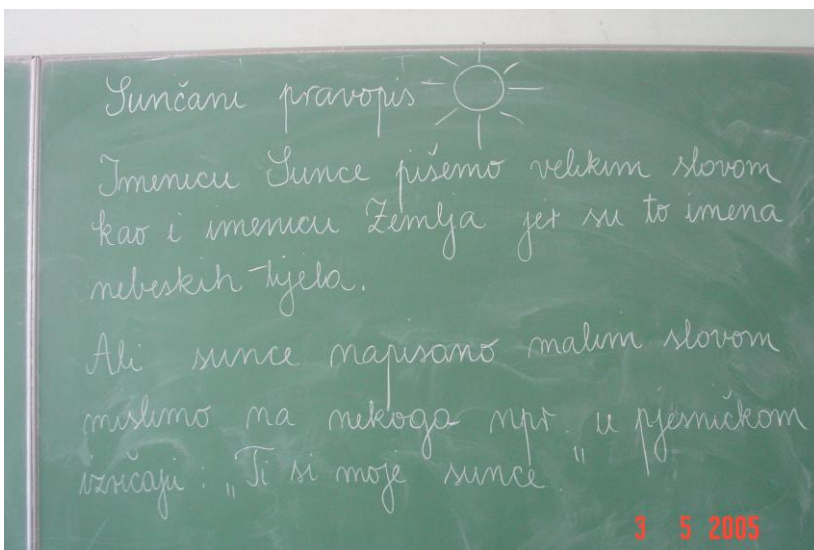 Sunčani pravopis
Imenicu Sunce pišemo velikim slovom
kao i imenicu Zemlja jer su to imena
nebeskih tijela.
Ali sunce napisano malim slovom
mislimo na nekoga npr. u pjesničkom
izričaju: „Ti si moje sunce."
3 5 2005